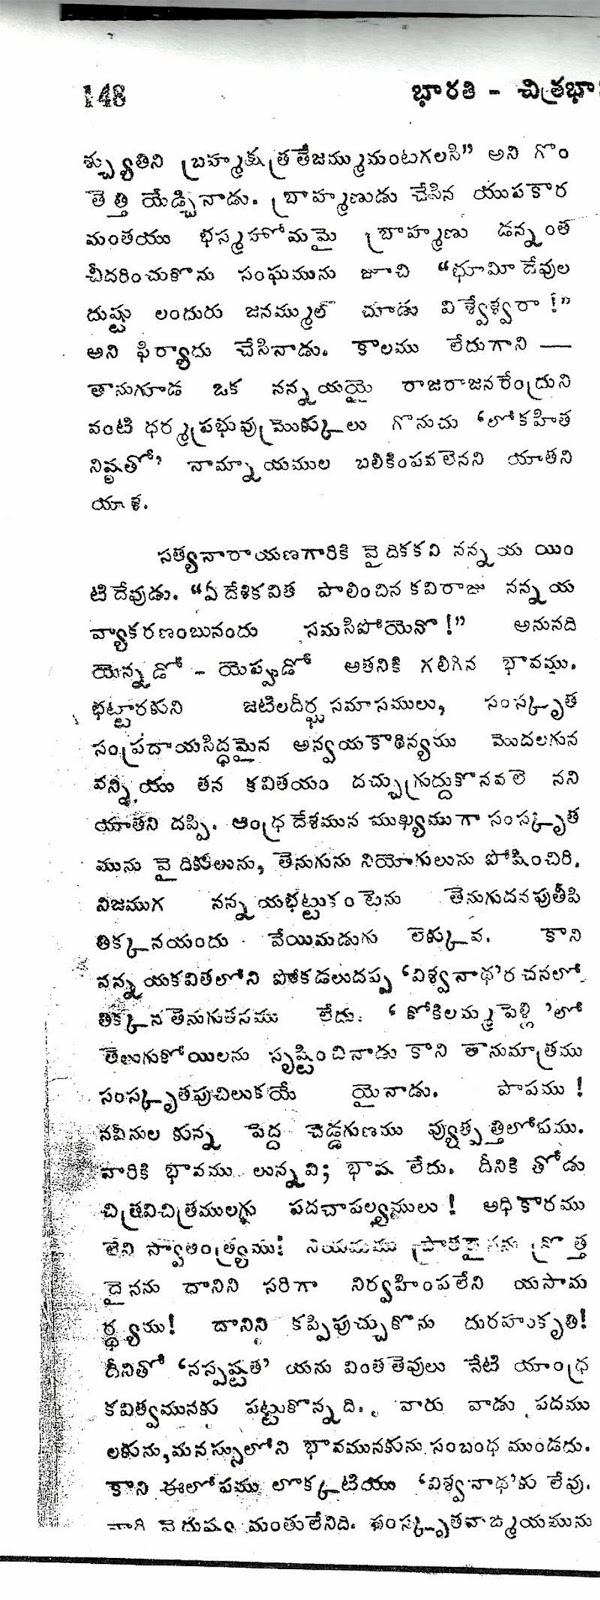 148 భారతి - చిత్రభా
శ్చ్యుతిని బ్రహ్మక్షత్రతేజమ్ముమంటగలసి” అని గొం
తెత్తి యేడ్చినాడు. బ్రాహ్మణుడు చేసిన యుపకార
మంతయు భస్మహోమమై బ్రాహ్మణు డన్నంత
చీదరించుకొను సంఘమును జూచి “భూమీదేవుల
దుష్టు లందురు జనమ్ముల్ చూడు విశ్వేశ్వరా!”
అని ఫిర్యాదు చేసినాడు. కాలము లేదుగాని —
తానుగూడ ఒక నన్నయయై రాజరాజనరేంద్రుని
వంటి ధర్మప్రభువు మ్రొక్కులు గొనుచు ‘లోకహిత
నిష్ఠతో’ నామ్నాయముల బలికింపవలెనని యాతని
యాశ.
సత్యనారాయణగారికి వైదికకవి నన్నయ యిం
టిదేవుడు. “ఏ దేశికవిత పాలించిన కవిరాజు నన్నయ
వ్యాకరణంబునందు సమసిపోయెనొ!” అనునది
యెన్నడో - యెప్పుడో ఆతనికి గలిగిన భావము.
భట్టారకుని జటిలదీర్ఘసమాసములు, సంస్కృత
సంప్రదాయసిద్ధమైన అన్వయకాఠిన్యము మొదలగున
వన్నియు తన కవితయం దచ్చుగ్రుద్దుకొనవలె నని
యాతని దప్పి. ఆంధ్రదేశమున ముఖ్యముగా సంస్కృత
మును వైదికులును, తెనుగును నియోగులును పోషించిరి.
నిజముగ నన్నయభట్టుకంటెను తెనుగుదనపుతీపి
తిక్కనయందు వేయిమడుగు లెక్కువ. కాని
నన్నయకవితలోని పోకడలుదప్ప ‘విశ్వనాథ’రచనలో
తిక్కనతెనుగుతనము లేదు. ‘కోకిలమ్మపెళ్లి’లో
తెలుగుకోయిలను సృష్టించినాడు కాని తానుమాత్రము
సంస్కృతపుచిలుకయే యైనాడు. పాపము!
నవీనుల కున్న పెద్ద చెడ్డగుణము వ్యుత్పత్తిలోపము.
వారికి భావము లున్నవి; భాష లేదు. దీనికి తోడు
చిత్రవిచిత్రములగు పదచాపల్యములు! అధికారము
లేని స్వాతంత్ర్యము! నియమము ప్రాతదైనను క్రొత్త
దైనను దానిని సరిగా నిర్వహింపలేని యసామ
ర్థ్యము! దానిని కప్పిపుచ్చుకొను దురహంకృతి!
దీనితో ‘నస్పష్టత’ యను వింతతెవులు నేటి యాంధ్ర
కవిత్వమునకు పట్టుకొన్నది. వారు వాడు పదము
లకును, మనస్సులోని భావమునకును సంబంధ ముండదు.
కాని ఈలోపము లొక్కటియు ‘విశ్వనాథ’కు లేవు.
మంతులేనిది. సంస్కృతవాఙ్మయమును